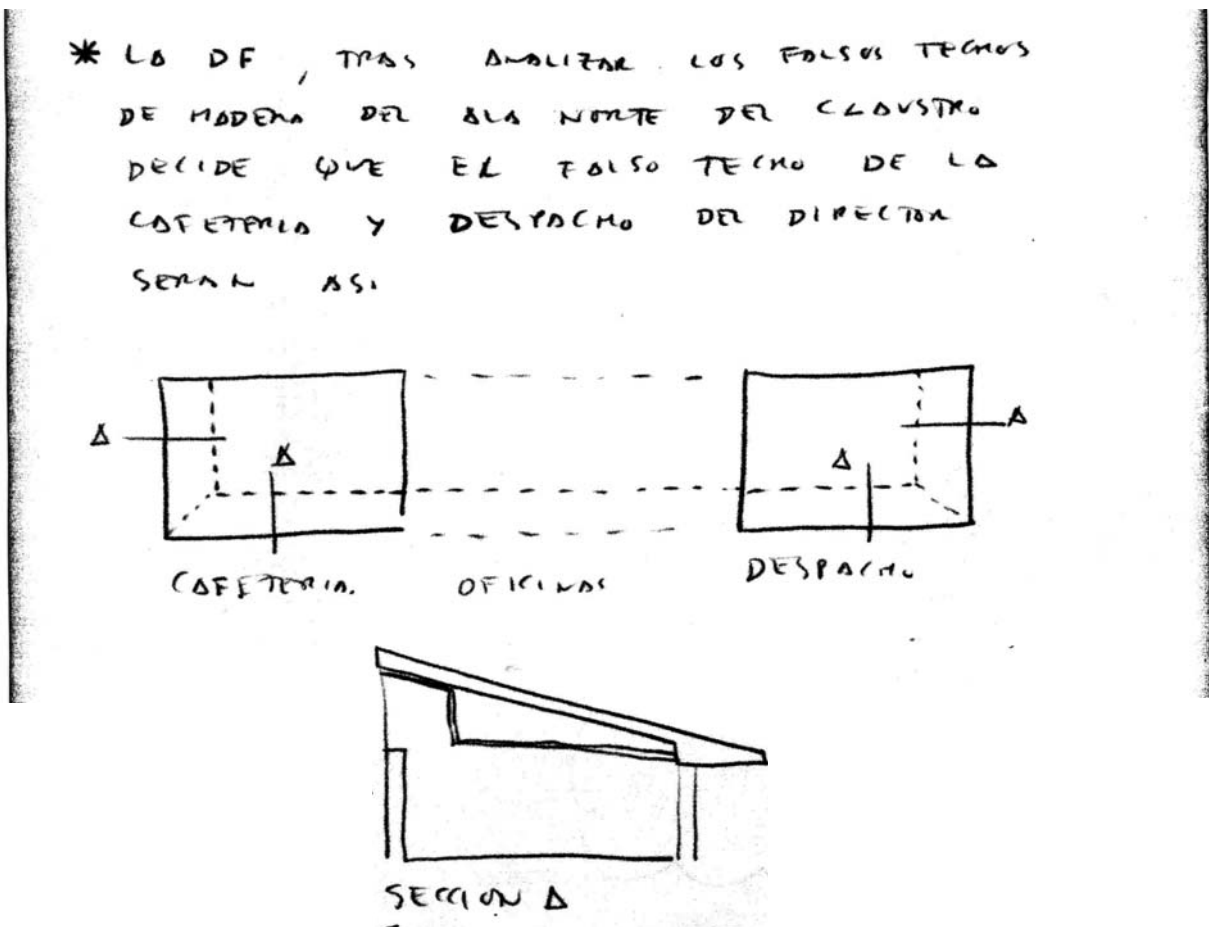 * LA DF, TRAS ANALIZAR LOS FALSOS TECHOS
DE MADERA DEL ALA NORTE DEL CLAUSTRO
DECIDE QUE EL FALSO TECHO DE LA
CAFETERIA Y DESPACHO DEL DIRECTOR
SERAN ASI
A A A A
CAFETERIA. OFICINAS DESPACHO
SECCION A